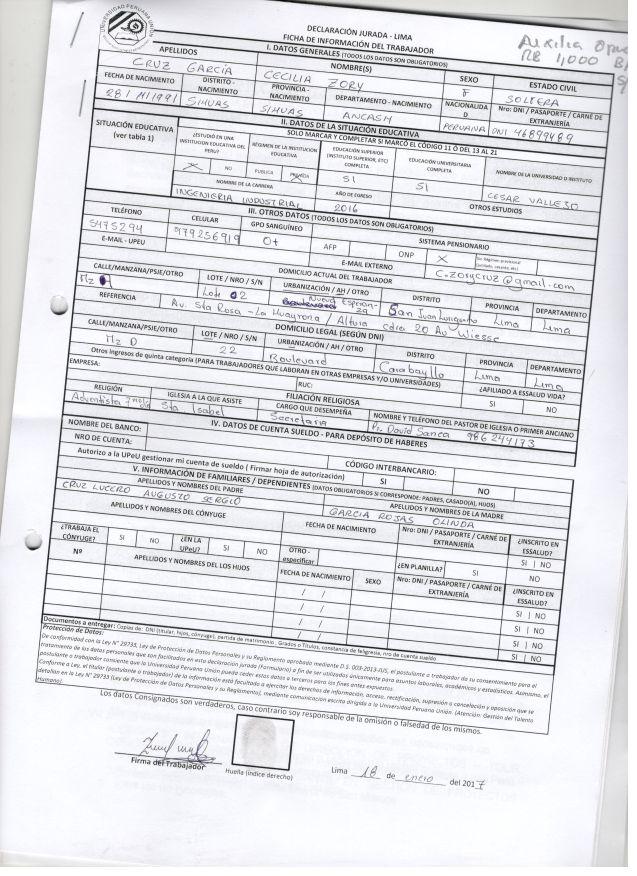 UNIVERSIDAD PERUANA UNIÓN
DECLARACIÓN JURADA - LIMA
FICHA DE INFORMACIÓN DEL TRABAJADOR
Auxilia
RB 1,000
I. DATOS GENERALES (TODOS LOS DATOS SON OBLIGATORIOS)
APELLIDOS NOMBRE(S) SEXO ESTADO CIVIL
CRUZ GARCÍA CECILIA ZORY F SOLTERA
FECHA DE NACIMIENTO DISTRITO - NACIMIENTO PROVINCIA - NACIMIENTO DEPARTAMENTO - NACIMIENTO NACIONALIDAD Nro: DNI / PASAPORTE / CARNÉ DE EXTRANJERÍA
SIHUAS SIHUAS ANCASH PERUANA DNI 46899489
II. DATOS DE LA SITUACIÓN EDUCATIVA
SITUACIÓN EDUCATIVA (ver tabla 1) SOLO MARCAR Y COMPLETAR SI MARCÓ EL CÓDIGO 11 Ó DEL 13 AL 21
¿ESTUDIÓ EN UNA INSTITUCION EDUCATIVA DEL PERU? RÉGIMEN DE LA INSTITUCION EDUCATIVA EDUCACIÓN SUPERIOR (INSTITUTO SUPERIOR, ETC) COMPLETA EDUCACIÓN UNIVERSITARIA COMPLETA NOMBRE DE LA UNIVERSIDAD O INSTITUTO
X NO PUBLICA PRIVADA X SI SI CESAR VALLEJO
NOMBRE DE LA CARRERA AÑO DE EGRESO OTROS ESTUDIOS
INGENIERIA INDUSTRIAL 2016
III. OTROS DATOS (TODOS LOS DATOS SON OBLIGATORIOS)
TELÉFONO CELULAR GPO SANGUÍNEO SISTEMA PENSIONARIO
5475294 979256919 O+ AFP ONP X
E-MAIL - UPEU E-MAIL EXTERNO
C.zorycruz@gmail.com
DOMICILIO ACTUAL DEL TRABAJADOR
CALLE/MANZANA/PSJE/OTRO LOTE / NRO / S/N URBANIZACIÓN / AH / OTRO DISTRITO PROVINCIA DEPARTAMENTO
Mz Lote 02 Nueva Esperanza San Juan Lurigancho Lima Lima
REFERENCIA Av. Sta Rosa - La Huayrona / Altura cdra 20 Av Wiesse
DOMICILIO LEGAL (SEGÚN DNI)
CALLE/MANZANA/PSJE/OTRO LOTE / NRO / S/N URBANIZACIÓN / AH / OTRO DISTRITO PROVINCIA DEPARTAMENTO
Mz D 22 Boulevard Carabayllo Lima Lima
Otros ingresos de quinta categoría (PARA TRABAJADORES QUE LABORAN EN OTRAS EMPRESAS Y/O UNIVERSIDADES) ¿AFILIADO A ESSALUD VIDA?
EMPRESA: RUC: SI NO
FILIACIÓN RELIGIOSA
RELIGIÓN IGLESIA A LA QUE ASISTE CARGO QUE DESEMPEÑA NOMBRE Y TELÉFONO DEL PASTOR DE IGLESIA O PRIMER ANCIANO
Adventista 7mo dia Sta. Isabel Secretaria Pr. David Sanca 986244173
IV. DATOS DE CUENTA SUELDO - PARA DEPÓSITO DE HABERES
NOMBRE DEL BANCO:
NRO DE CUENTA: CÓDIGO INTERBANCARIO:
Autorizo a la UPeU gestionar mi cuenta de sueldo ( Firmar hoja de autorización) SI NO
V. INFORMACIÓN DE FAMILIARES / DEPENDIENTES (DATOS OBLIGATORIOS SI CORRESPONDE: PADRES, CASADO(A), HIJOS)
APELLIDOS Y NOMBRES DEL PADRE APELLIDOS Y NOMBRES DE LA MADRE
CRUZ LUCERO AUGUSTO SERGIO GARCIA ROJAS OLINDA
APELLIDOS Y NOMBRES DEL CÓNYUGE FECHA DE NACIMIENTO Nro: DNI / PASAPORTE / CARNÉ DE EXTRANJERÍA ¿INSCRITO EN ESSALUD?
SI | NO
¿TRABAJA EL CÓNYUGE? SI NO ¿EN LA UPeU? SI NO OTRO - especificar ¿EN PLANILLA? SI NO
Nº APELLIDOS Y NOMBRES DE LOS HIJOS FECHA DE NACIMIENTO SEXO Nro: DNI / PASAPORTE / CARNÉ DE EXTRANJERÍA ¿INSCRITO EN ESSALUD?
/ / SI | NO
/ / SI | NO
/ / SI | NO
/ / SI | NO
Documentos a entregar: Copias de: DNI (titular, hijos, cónyuge), partida de matrimonio, Grados o Títulos, constancia de feligresía, nro de cuenta sueldo
Protección de Datos:
De conformidad con la Ley N° 29733, Ley de Protección de Datos Personales y su Reglamento aprobado mediante D.S. 003-2013-JUS, el postulante o trabajador da su consentimiento para el
tratamiento de los datos personales que son facilitados en esta declaración jurada (Formulario) a fin de ser utilizados únicamente para asuntos laborales, académicos y estadísticos. Asimismo, el
postulante o trabajador consiente que la Universidad Peruana Unión pueda ceder estos datos a terceros para los fines antes expuestos.
Conforme a Ley, el titular (postulante o trabajador) de la información está facultado a ejercitar los derechos de información, acceso, rectificación, supresión o cancelación y oposición que se
detallan en la Ley N° 29733 (Ley de Protección de Datos Personales y su Reglamento), mediante comunicación escrita dirigida a la Universidad Peruana Unión. (Atención: Gestión del Talento
Humano).
Los datos Consignados son verdaderos, caso contrario soy responsable de la omisión o falsedad de los mismos.
Firma del Trabajador
Huella (índice derecho)
Lima 18 de enero del 2017